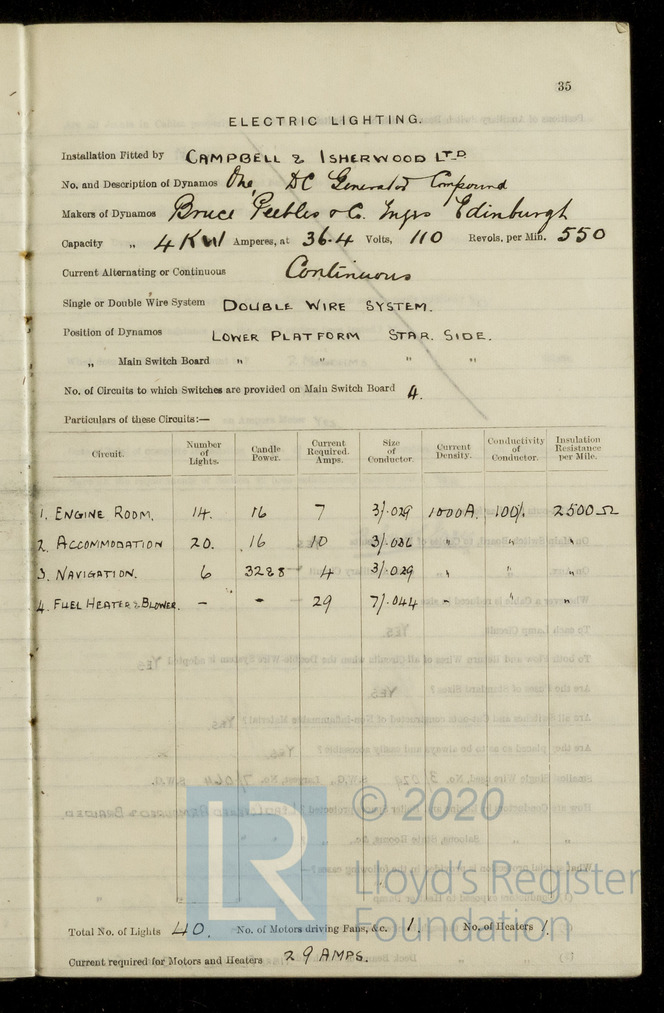 35
ELECTRIC LIGHTING.
Installation Fitted by CAMPBELL & ISHERWOOD LTD.
No. and Description of Dynamos One, DC Generator Compound
Makers of Dynamos Bruce Peebles & Co. Engrs Edinburgh
Capacity „ 4 KW Amperes, at 36.4 Volts, 110 Revols. per Min. 550
Current Alternating or Continuous Continuous
Single or Double Wire System DOUBLE WIRE SYSTEM.
Position of Dynamos LOWER PLATFORM STAR. SIDE.
„ Main Switch Board " " " "
No. of Circuits to which Switches are provided on Main Switch Board 4.
Particulars of these Circuits:—
Circuit. Number of Lights. Candle Power. Current Required. Amps. Size of Conductor. Current Density. Conductivity of Conductor. Insulation Resistance per Mile.
1. ENGINE ROOM. 14. 16 7 3/.029 1000A. 100%. 2500 Ω
2. ACCOMMODATION 20. 16 10 3/.036 " " "
3. NAVIGATION. 6 32&8 4 3/.029 " " "
4. FUEL HEATER & BLOWER. - - 29 7/.044 - " "
© 2020
LR Lloyd's Register
Foundation
Total No. of Lights 40. No. of Motors driving Fans, &c. 1. No. of Heaters 1.
Current required for Motors and Heaters 29 AMPS.